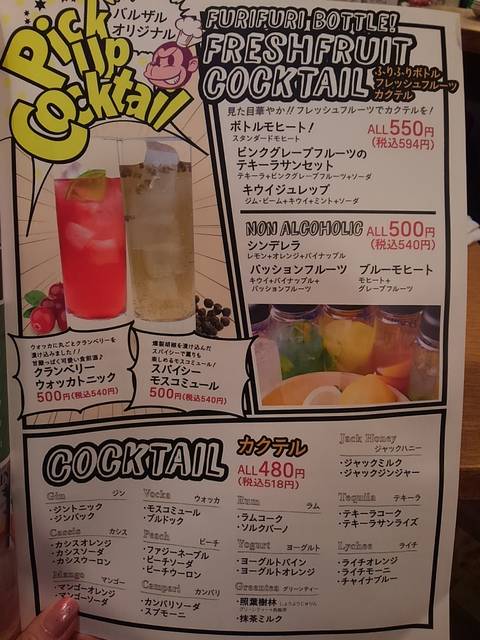 Pick
Up
Cocktail
バルザル
オリジナル
FURIFURI BOTTLE!
FRESHFRUIT
COCKTAIL
ふりふりボトル
フレッシュフルーツ
カクテル
見た目華やか!!フレッシュフルーツでカクテルを!
ボトルモヒート!
スタンダードモヒート
ALL 550円
(税込594円)
ピンクグレープフルーツの
テキーラサンセット
テキーラ+ピンクグレープフルーツ+ソーダ
キウイジュレップ
ジム・ビーム+キウイ+ミント+ソーダ
NON ALCOHOLIC
ALL 500円
(税込540円)
シンデレラ
レモン+オレンジ+パイナップル
パッションフルーツ
キウイ+パイナップル+
パッションフルーツ
ブルーモヒート
モヒート+
グレープフルーツ
ウォッカに丸ごとクランベリーを
漬け込みました!!
甘酸っぱく可愛い食前酒♪
クランベリー
ウォッカトニック
500円(税込540円)
燻製胡椒を漬け込んだ
スパイシーで薫りも
楽しめるモスコミュール!
スパイシー
モスコミュール
500円(税込540円)
COCKTAIL
カクテル
ALL 480円
(税込518円)
Jack Honey
ジャックハニー
・ジャックミルク
・ジャックジンジャー
Gin ジン
・ジントニック
・ジンバック
Vocka ウォッカ
・モスコミュール
・ブルドック
Rum ラム
・ラムコーク
・ソルクバーノ
Tequila テキーラ
・テキーラコーク
・テキーラサンライズ
Cassis カシス
・カシスオレンジ
・カシスソーダ
・カシスウーロン
Peach ピーチ
・ファジーネーブル
・ピーチソーダ
・ピーチウーロン
Yogurt ヨーグルト
・ヨーグルトパイン
・ヨーグルトオレンジ
Lychee ライチ
・ライチオレンジ
・ライチモーニ
・チャイナブルー
Mango マンゴー
・マンゴーオレンジ
・マンゴーソーダ
Campari カンパリ
・カンパリソーダ
・スプモーニ
Greentea グリーンティー
・照葉樹林 しょうようじゅりん
・抹茶ミルク